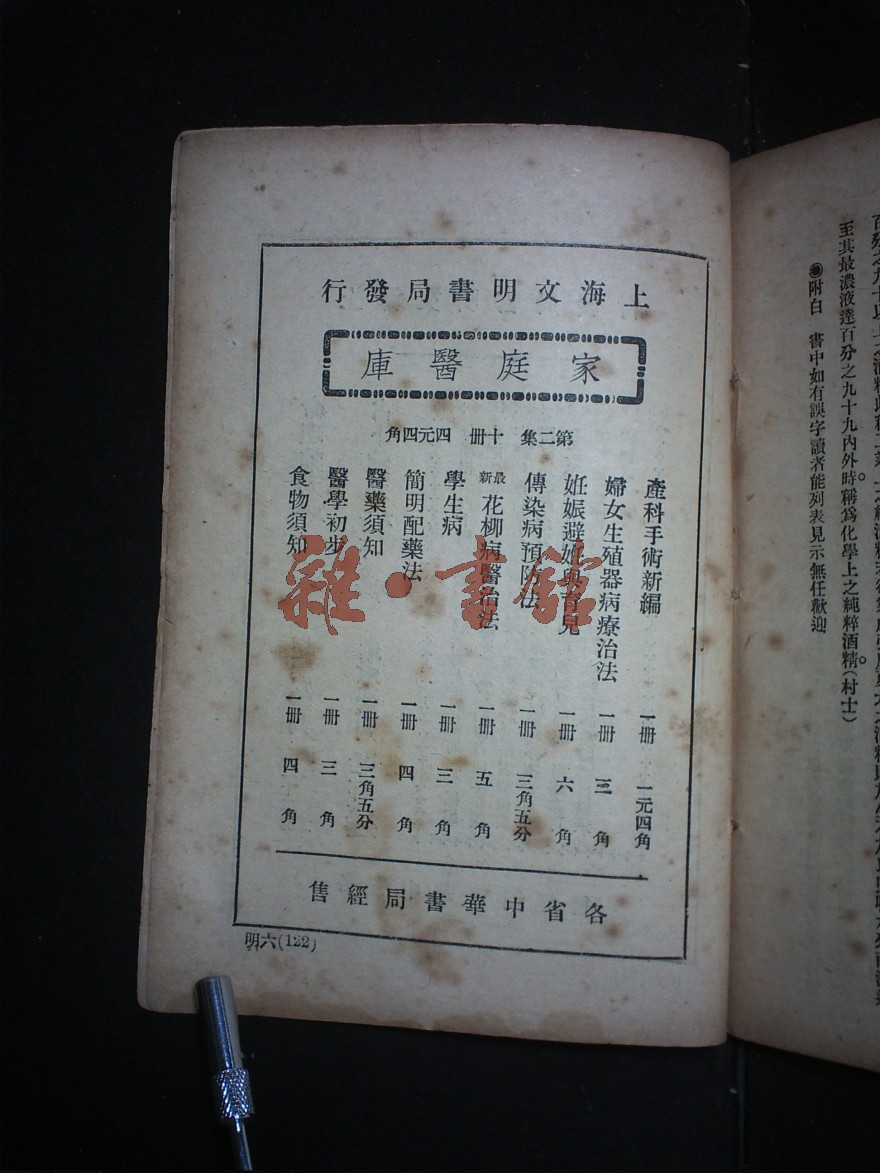 至其最濃液達百分之九十九內外時。稱爲化學上之純粹酒精。(村士)
◉附白　書中如有誤字讀者能列表見示無任歡迎
上海文明書局發行
家庭醫庫
第二集　十冊　四元四角
產科手術新編　一冊　一元四角
婦女生殖器病療治法　一冊　三角
妊娠避妊與育兒　一冊　六角
傳染病預防法　一冊　三角五分
最新花柳病醫治法　一冊　五角
學生病　一冊　三角
簡明配藥法　一冊　四角
醫藥須知　一冊　三角五分
醫學初步　一冊　三角
食物須知　一冊　四角
各省中華書局經售
明六(122)
雜·書館